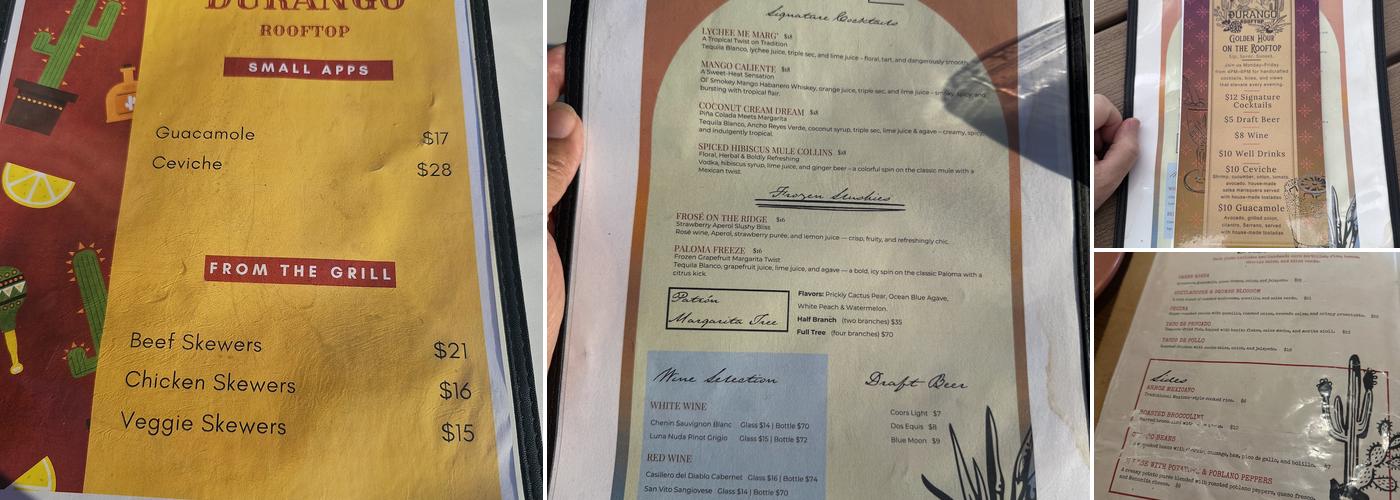 DURANGO
ROOFTOP
SMALL APPS
Guacamole $17
Ceviche $28
FROM THE GRILL
Beef Skewers $21
Chicken Skewers $16
Veggie Skewers $15
Signature Cocktails
LYCHEE ME MARG' $18
A Tropical Twist on Tradition
Tequila Blanco, lychee juice, triple sec, and lime juice - floral, tart, and dangerously smooth.
MANGO CALIENTE $18
A Sweet-Heat Sensation
Ol' Smokey Mango Habanero Whiskey, orange juice, triple sec, and lime juice – smoky, spicy, and
bursting with tropical flair.
COCONUT CREAM DREAM $18
Piña Colada Meets Margarita
Tequila Blanco, Ancho Reyes Verde, coconut syrup, triple sec, lime juice & agave – creamy, spicy,
and indulgently tropical.
SPICED HIBISCUS MULE COLLINS $18
Floral, Herbal & Boldly Refreshing
Vodka, hibiscus syrup, lime juice, and ginger beer – a colorful spin on the classic mule with a
Mexican twist.
Frozen Slushies
FROSÉ ON THE RIDGE $16
Strawberry Aperol Slushy Bliss
Rosé wine, Aperol, strawberry purée, and lemon juice — crisp, fruity, and refreshingly chic.
PALOMA FREEZE $16
Frozen Grapefruit Margarita Twist
Tequila Blanco, grapefruit juice, lime juice, and agave — a bold, icy spin on the classic Paloma with a
citrus kick.
Patrón
Margarita Tree
Flavors: Prickly Cactus Pear, Ocean Blue Agave,
White Peach & Watermelon.
Half Branch (two branches) $35
Full Tree (four branches) $70
Wine Selection
WHITE WINE
Chenin Sauvignon Blanc Glass $14 | Bottle $70
Luna Nuda Pinot Grigio Glass $15 | Bottle $72
RED WINE
Casillero del Diablo Cabernet Glass $16 | Bottle $74
San Vito Sangiovese Glass $14 | Bottle $70
Draft Beer
Coors Light $7
Dos Equis $8
Blue Moon $9
DURANGO
ROOFTOP
GOLDEN HOUR
ON THE ROOFTOP
Sip. Savor. Sunset.
Join us Monday-Friday
from 4PM-6PM for handcrafted
cocktails, bites, and views
that elevate every evening.
$12 Signature
Cocktails
$5 Draft Beer
$8 Wine
$10 Well Drinks
$10 Ceviche
Shrimp, cucumber, onion, tomato,
avocado, house-made
salsa marisquera served
with house-made tostadas
$10 Guacamole
Avocado, grilled onion,
cilantro, Serrano, served
with house-made tostadas
TACO DE PESCADO
TACOS DE POLLO
Sides
ARROZ MEXICANO
Traditional Mexican-style cooked rice. $6
ROASTED BROCCOLINI
BEANS
sausage, ham, pico de gallo, and bolillo. $7
WITH POTATO & POBLANO PEPPERS
A creamy potato puree blended with roasted poblano peppers, queso fresco,